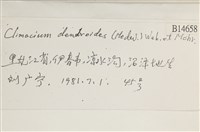 B14658
Climacium dendroides (Hedw.) Web. et Mohr
黑龙江省,伊春市,凉水沟,沼泽地上
刘广宁, 1981.7.1.